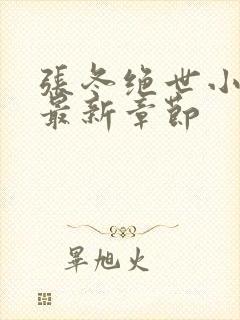 張冬绝世小
最新章節
畢旭火